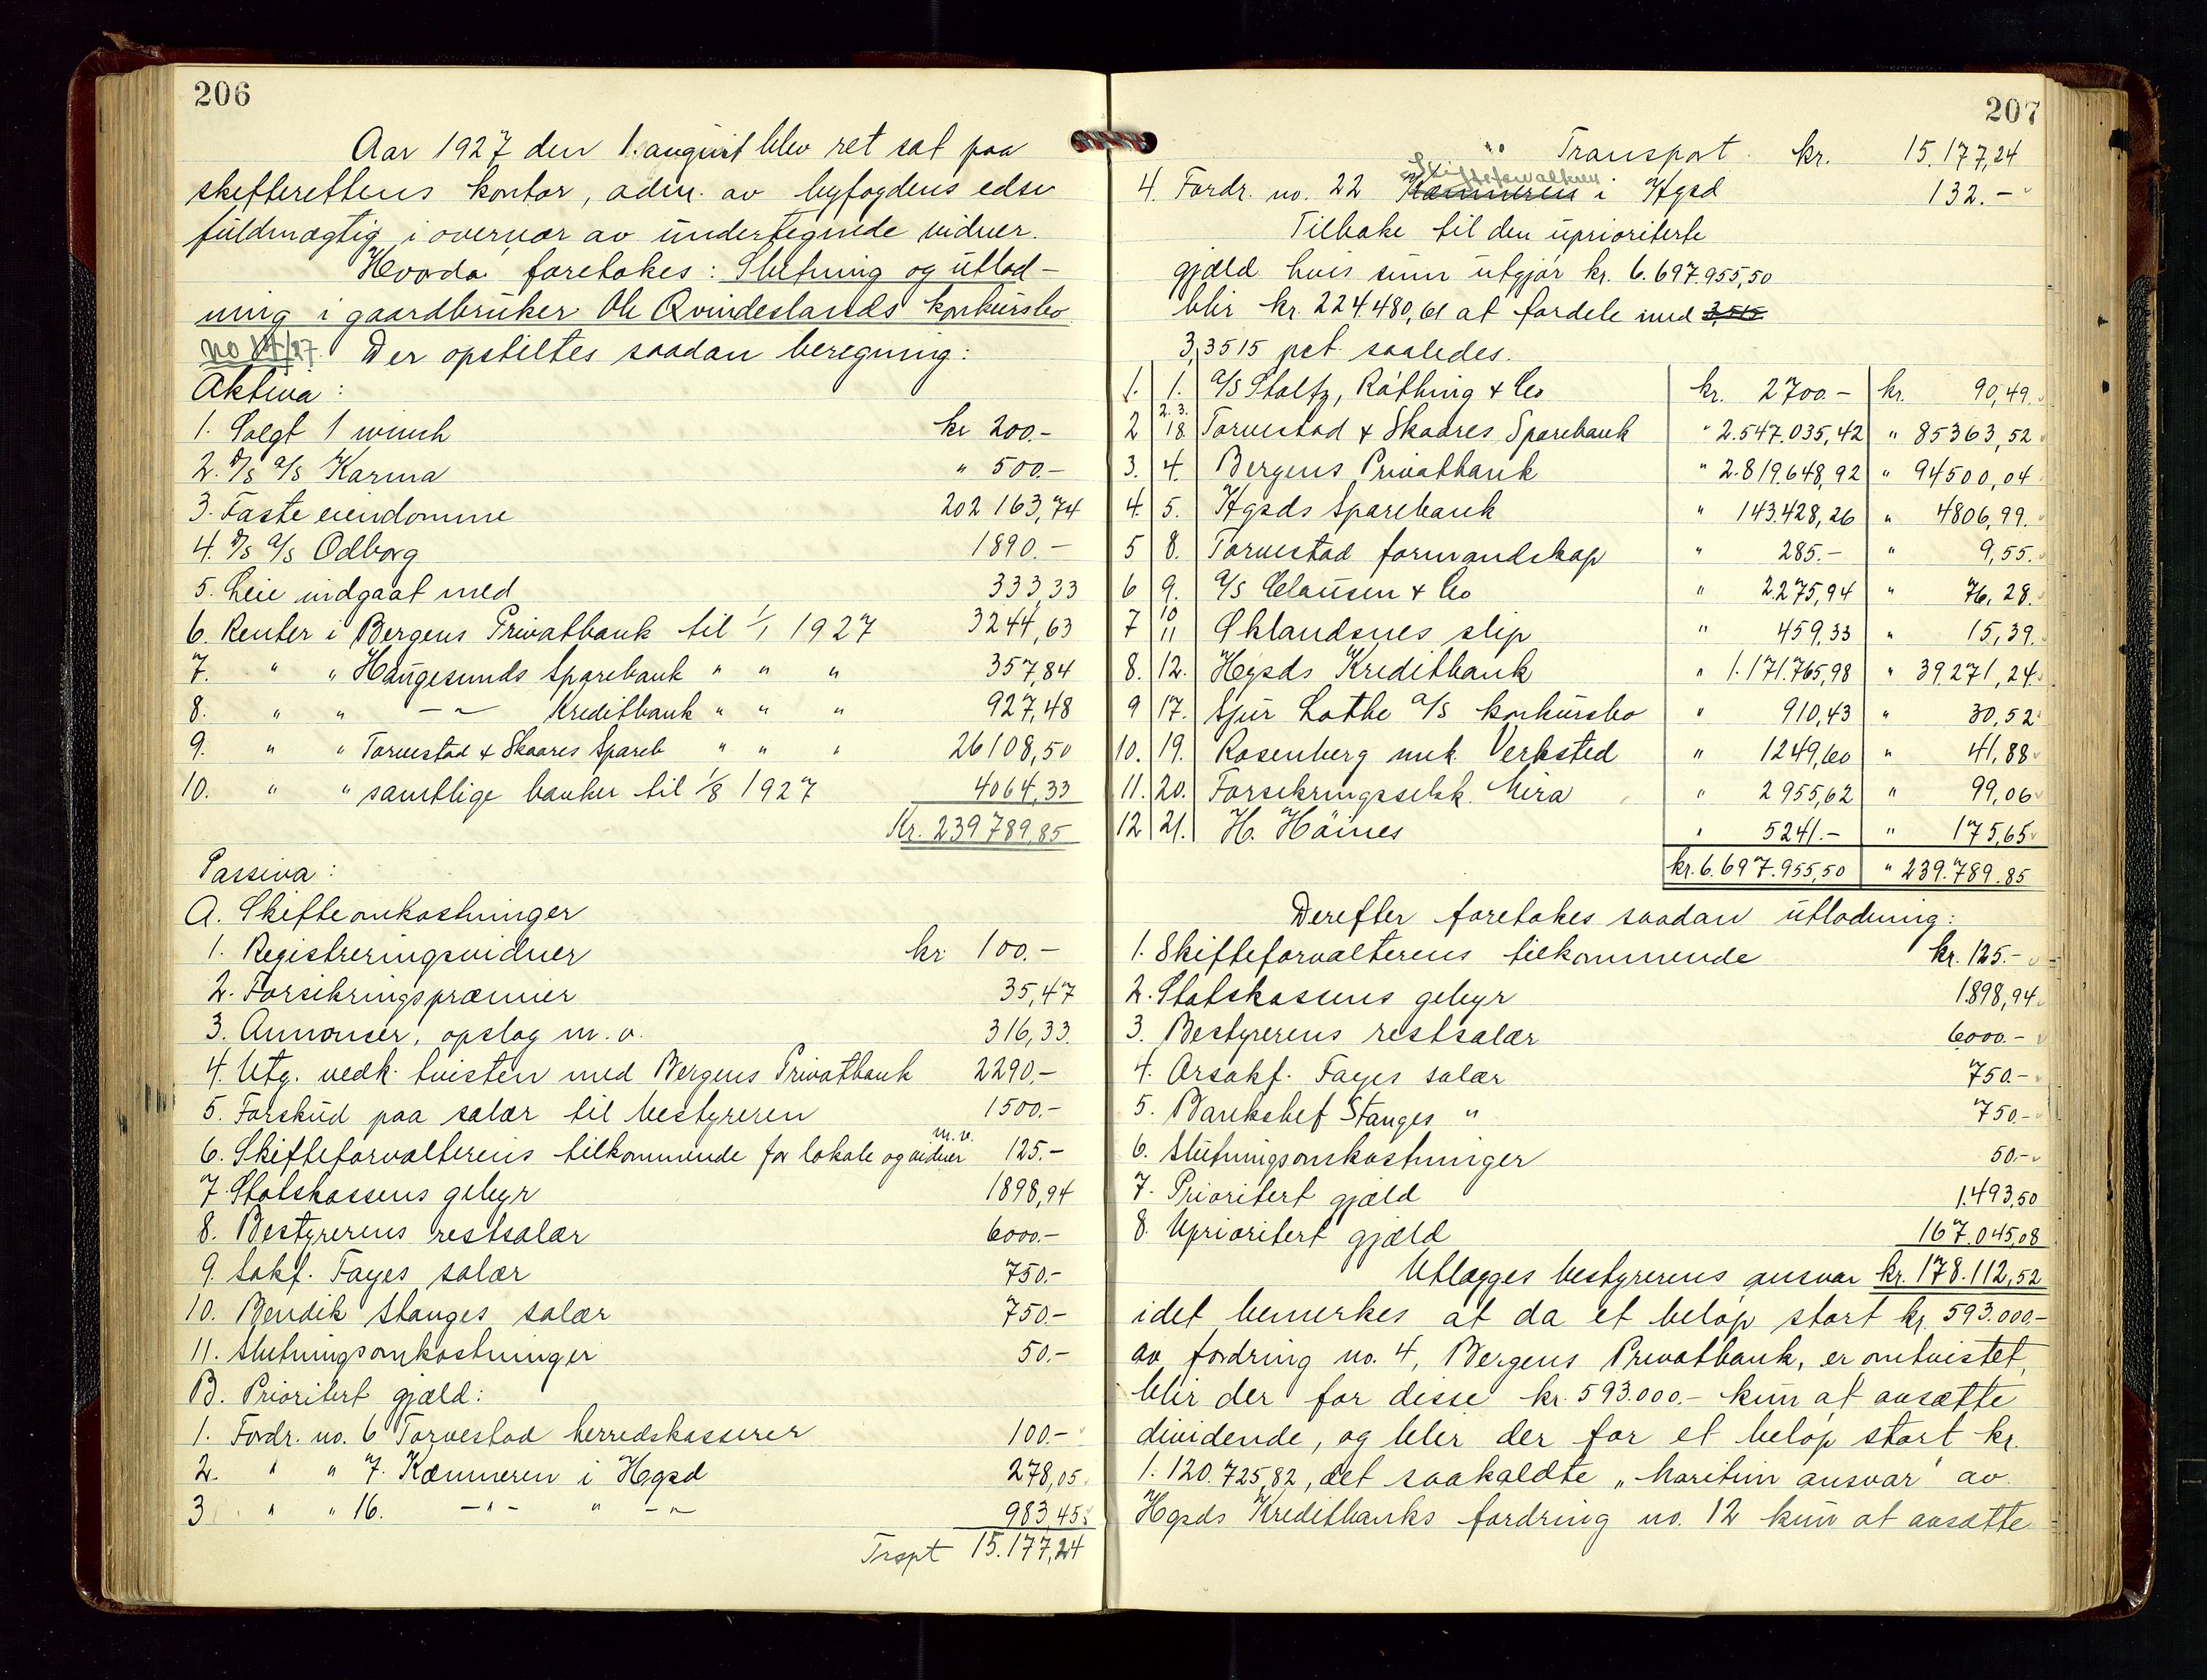 206
Aar 1927 den 1. august blev ret sat paa
skifterettens kontor, adm. av byfogdens edsv
fuldmægtig i overvær av undertegnede vidner.
Hvorda foretokes: Slutning og utlod-
ning i gaardbruker Ole Qvindeslands konkursbo
no 14/27. Der opstiltes saadan beregning:
Aktiva:
1. Solgt 1 winch kr 200.-
2. D/S A/S Karma " 500.-
3. Faste eiendomme 202 163,74
4. D/S A/S Odborg 1890.-
5. Leie indgaat med 333,33
6. Renter i Bergens Privatbank til 1/1 1927 3244,63
7. " " Haugesunds Sparebank " " " 357,84
8. " " -"- Kreditbank " " " 927,48
9. " " Torvestad & Skaares Spareb " " " 26108,50
10. " " samtlige banker til 1/8 1927 4064,33
Kr. 239 789,85
Passiva:
A. Skifteomkostninger
1. Registreringsvidner kr 100.-
2. Forsikringspræmier 35,47
3. Annonser, opslag m.v. 316,33.
4. Utg. vedk. tvisten med Bergens Privatbank 2290,-
5. Forskud paa salær til bestyreren 1500.-
6. Skifteforvalterens tilkommende for lokale og vidner m.v. 125.-
7. Statskassens gebyr 1898,94
8. Bestyrerens restsalær 6000.-
9. Sakf. Fayes salær 750.-
10. Bendik Stanges salær 750.-
11. Slutningsomkostninger 50.-
B. Prioritert gjæld:
1. Fordr. no. 6 Torvestad herredskasserer 100.-
2. " " 7. Kæmneren i Hgsd 278,05.
3 " " 16. -"- " -"- 983,45
Trspt 15.177,24
207
Transport kr. 15.177,24
4. Fordr. no. 22 Kæmneren Skifteforvalteren i Hgsd 132.-
Tilbake til den uprioriterte
gjæld hvis sum utgjør kr. 6.697.955,50
blir kr. 224.480,61 at fordele med 3,515
3,3515 pct. saaledes.
1. 1. A/S Stoltz, Røthing & Co kr. 2700.- kr. 90,49.
2 2. 3. 18. Torvestad & Skaares Sparebank " 2.547.035,42 " 85363,52
3. 4. Bergens Privatbank " 2.819.648,92 " 94500,04
4. 5. Hgsds Sparebank " 143.428,26 " 4806,99.
5 8. Torvestad formandskap " 285.- " 9,55.
6 9. A/S Clausen & Co " 2.275,94 " 76,28.
7 10 11 Øklandsnes slip " 459,33 " 15,39.
8. 12. Hgsds Kreditbank " 1.171.765,98 " 39.271,24
9 17. Sjur Lothe A/S konkursbo " 910,43 " 30,52
10. 19. Rosenberg mek. Verksted " 1249,60 " 41,88
11. 20. Forsikringsselsk. Mira " 2955,62 " 99,06
12 21. H. Høines " 5241.- " 175,65
kr. 6.697.955,50 " 239.789.85
Derefter foretokes saadan utlodning:
1. Skifteforvalterens tilkommende kr. 125.-
2. Statskassens gebyr 1898,94
3. Bestyrerens restsalær 6000.-
4. Orsakf. Fayes salær 750.-
5. Bankchef Stanges " 750.-
6. Slutningsomkostninger 50.-
7. Prioritert gjæld 1.493,50
8. Uprioritert gjæld 167.045,08
Utlægges bestyrerens ansvar kr. 178.112,52
idet bemerkes at da et beløp stort kr. 593.000.-
av fordring no. 4, Bergens Privatbank, er omtvistet,
blir der for disse kr. 593.000.- kun at avsætte
dividende, og blir der for et beløp stort kr.
1.120.725,82, det saakaldte „maritim ansvar" av
Hgsds Kreditbanks fordring no. 12 kun at avsætte